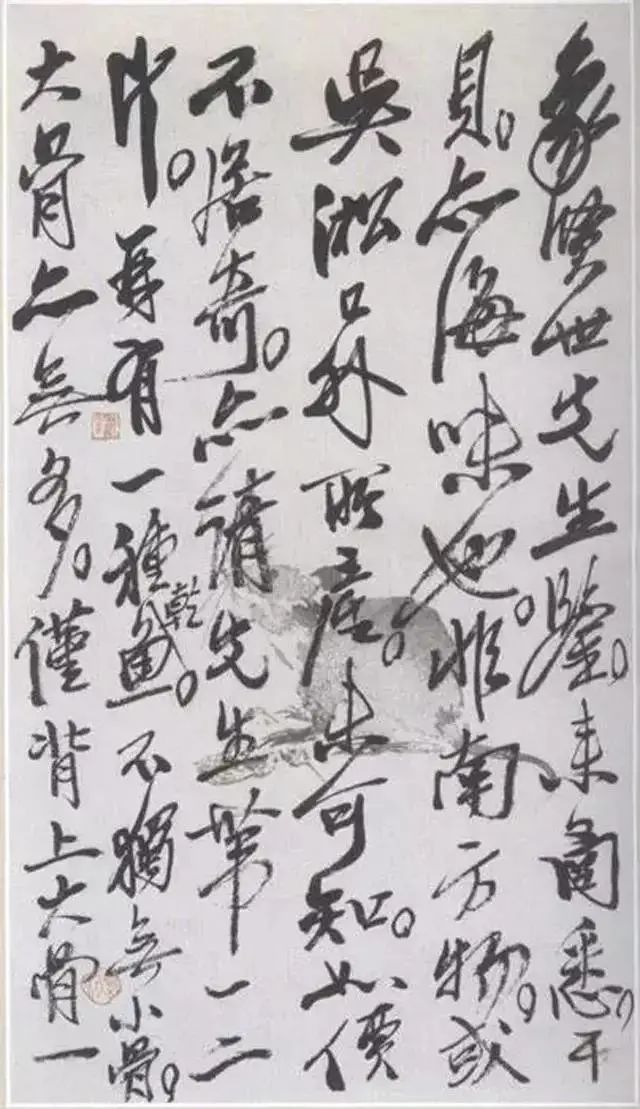 象賢世先生鑒。來圅悉，干
貝。亦海味也。非南方物。或
吳淞口外所產。未可知。如價
不居奇。亦請先生帶一二
斤。再有一種魚乾。不獨無小骨。
大骨亦無多。僅背上大骨一